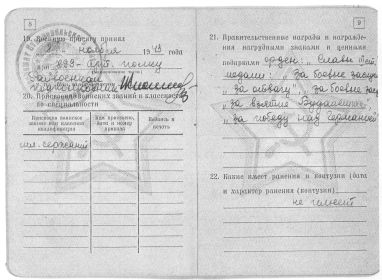 8
19. Военную присягу принял
ноября 19 года
20. Присвоение воинских званий и классности
по специальности
Присвоено воинское
звание или классная
квалификация
Кем присвоено,
дата и номер
приказа
Подпись и
печать
мл. сержант
9
21. Правительственные награды и награжде-
ния нагрудными знаками и ценными
подарками орден: „Славы
медали: за боевые заслуги
„за отвагу", „за боевые
„за взятие Будапешта"
„за победу над Германией
22. Какие имеет ранения и контузии (дата
и характер ранения (контузии)
не имеет